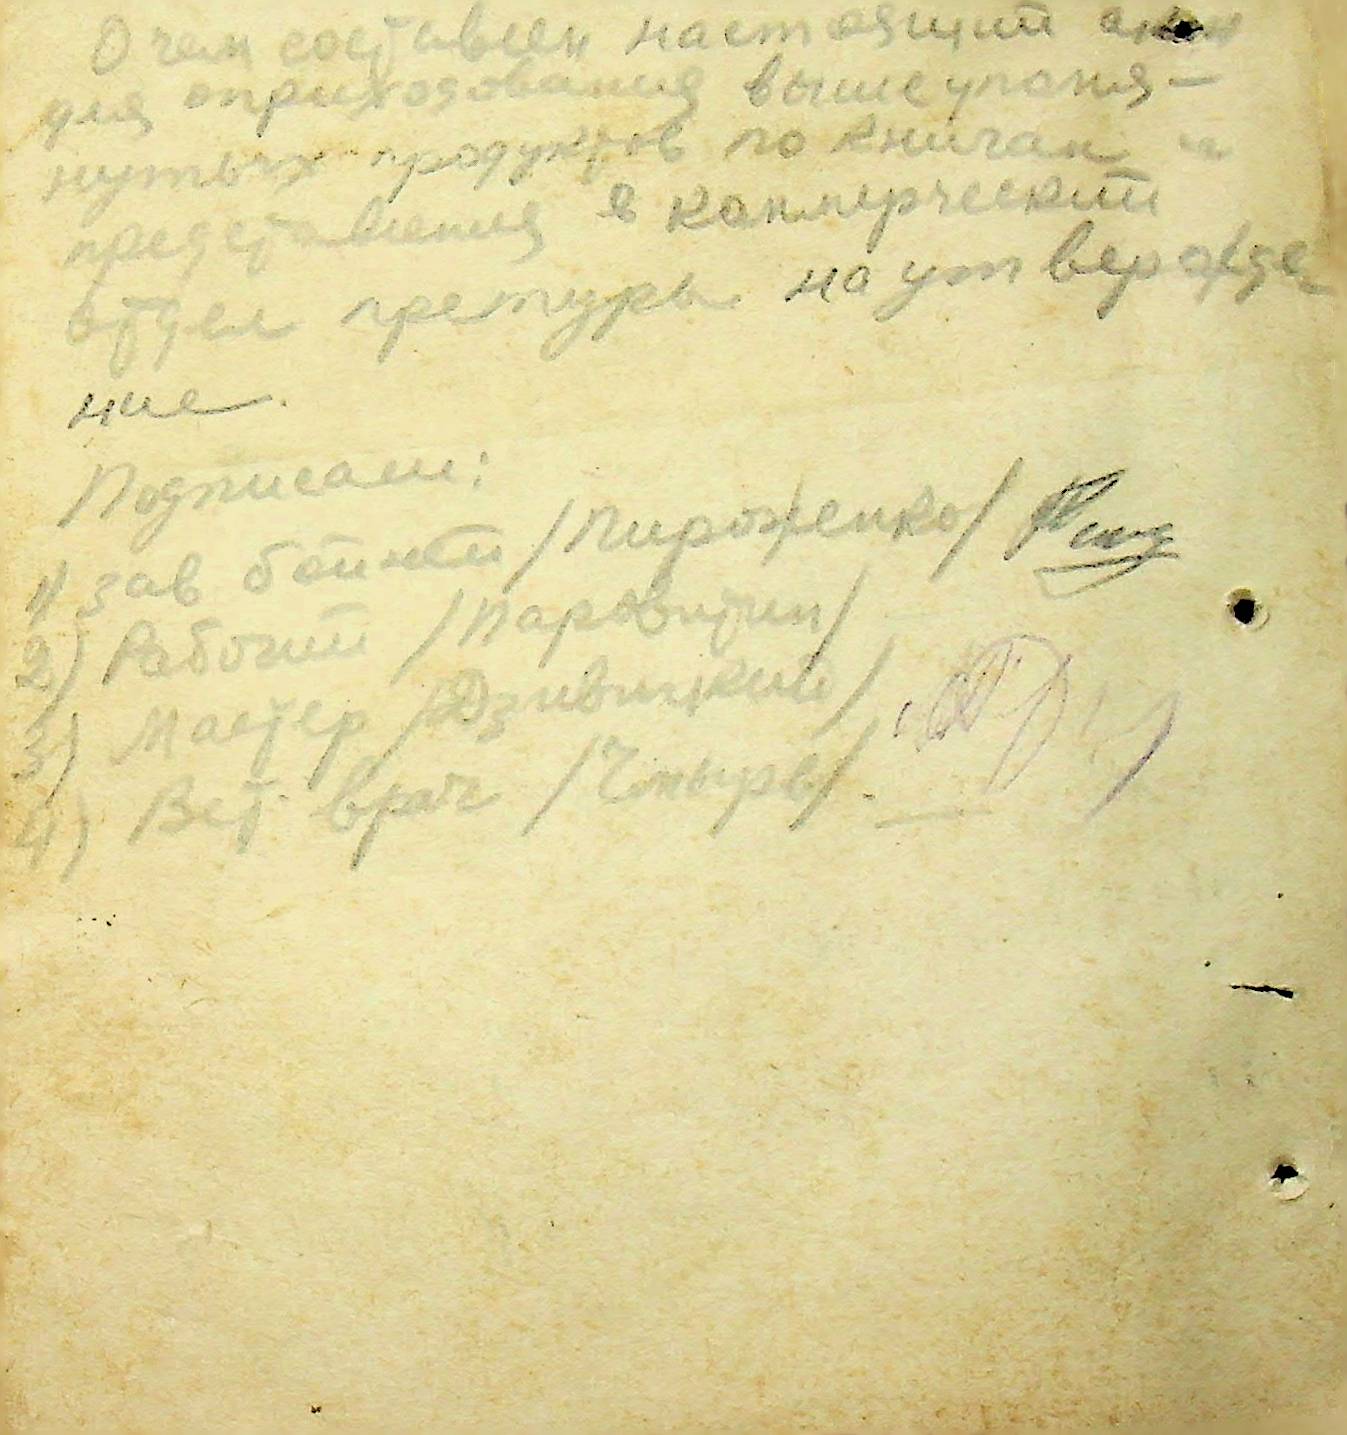 О чем составлен настоящий акт
для оприходования вышеупомя-
нутых продуктов по книгам и
представления в коммерческий
отдел претуры на утвержде
ние.
Подписали:
1) зав бойней /Пироженко/
2) Рабочий /Паровишин/
3) Мастер /Дзивицкий/
4) Вет. врач /Чмырь/.